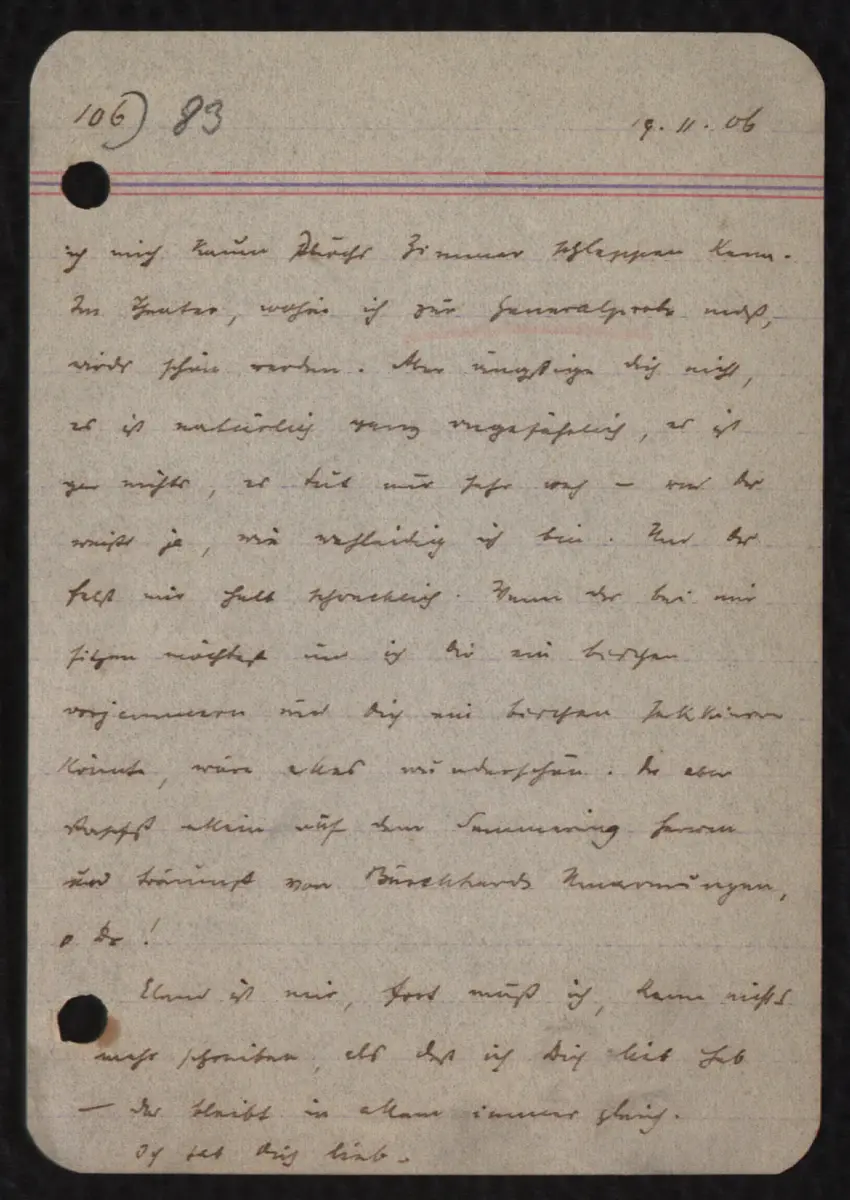 106) 83 19. 11. 06
ich mich kaum durchs Zimmer schleppen kann.
Im Theater, wohin ich zur Generalprobe muß,
wirds schön werden. Aber ängstige dich nicht,
es ist natürlich ganz ungefährlich, es ist
gar nichts, es tut nur sehr weh – und du
weißt ja, wie wehleidig ich bin. Und du
fehlst mir halt schrecklich. Wenn du bei mir
sitzen möchtest und ich dir ein bischen
vorjammern und dich ein bischen sekkieren
könnte, wäre alles wunderschön. Du aber
stapfst allein auf dem Semmering herum
und träumst von Burckhards Umarmungen,
o Du!
Elend ist mir, fort muß ich, kann nichts
mehr schreiben, als daß ich Dich lieb hab
– das bleibt in allem immer gleich.
Ich hab dich lieb.